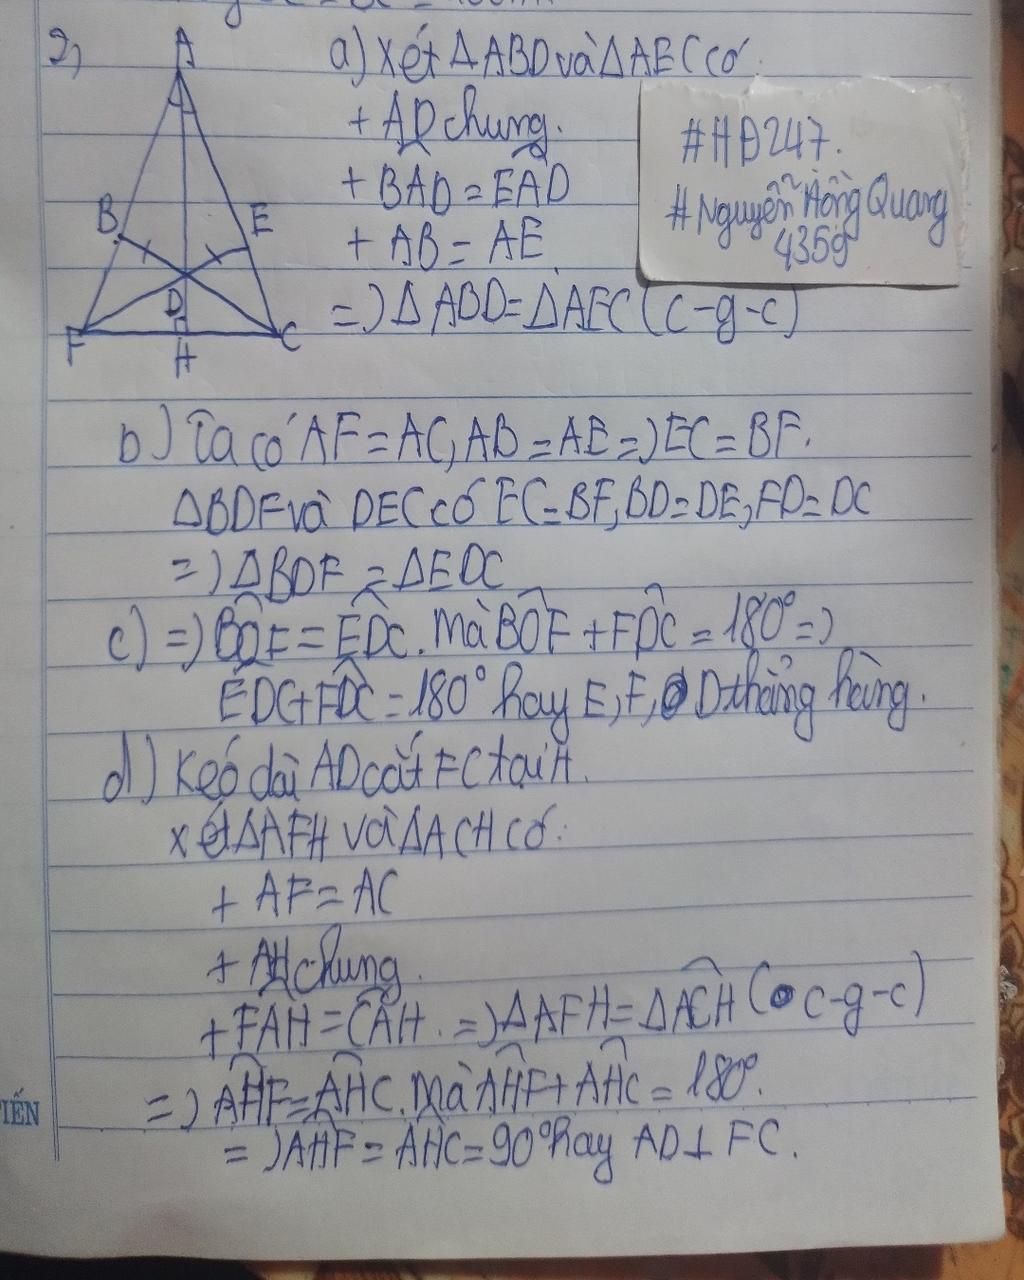 2,
A
B
E
D
F
H
C
a) Xét ΔABD và ΔAEC có:
+ AD chung.
+ BAD = EAD
+ AB = AE
=) ΔABD = ΔAEC (c-g-c)
#HĐ247.
#Nguyễn Hồng Quang
4359
b) Ta có AF = AC, AB = AE =) EC = BF.
ΔBDF và DEC có EC = BF, BD = DE, FD = DC
=) ΔBDF = ΔEDC
c) =) BDF = EDC. Mà BDF + FDC = 180° =)
EDC + FDC = 180° hay E, F, D thẳng hàng.
d) Kéo dài AD cắt FC tại H.
Xét ΔAFH và ΔACH có:
+ AF = AC
+ AH chung.
+ FAH = CAH. =) ΔAFH = ΔACH (c-g-c)
=) AHF = AHC. Mà AHF + AHC = 180°.
=) AHF = AHC = 90° hay AD ⊥ FC.
IẾN